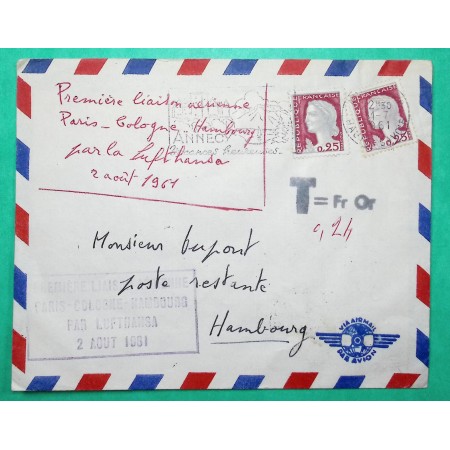 Première liaison aérienne
Paris - Cologne - Hambourg
par la Lufthansa
2 août 1961
ANNECY
REPUBLIQUE FRANÇAISE
0,25
REPUBLIQUE FRANÇAISE
0,25
T = Fr Or
0,24
Monsieur Dupont
poste restante
Hambourg
PREMIERE LIAISON AERIENNE
PARIS-COLOGNE-HAMBOURG
PAR LUFTHANSA
2 AOUT 1961
VIA AIR MAIL
PAR AVION